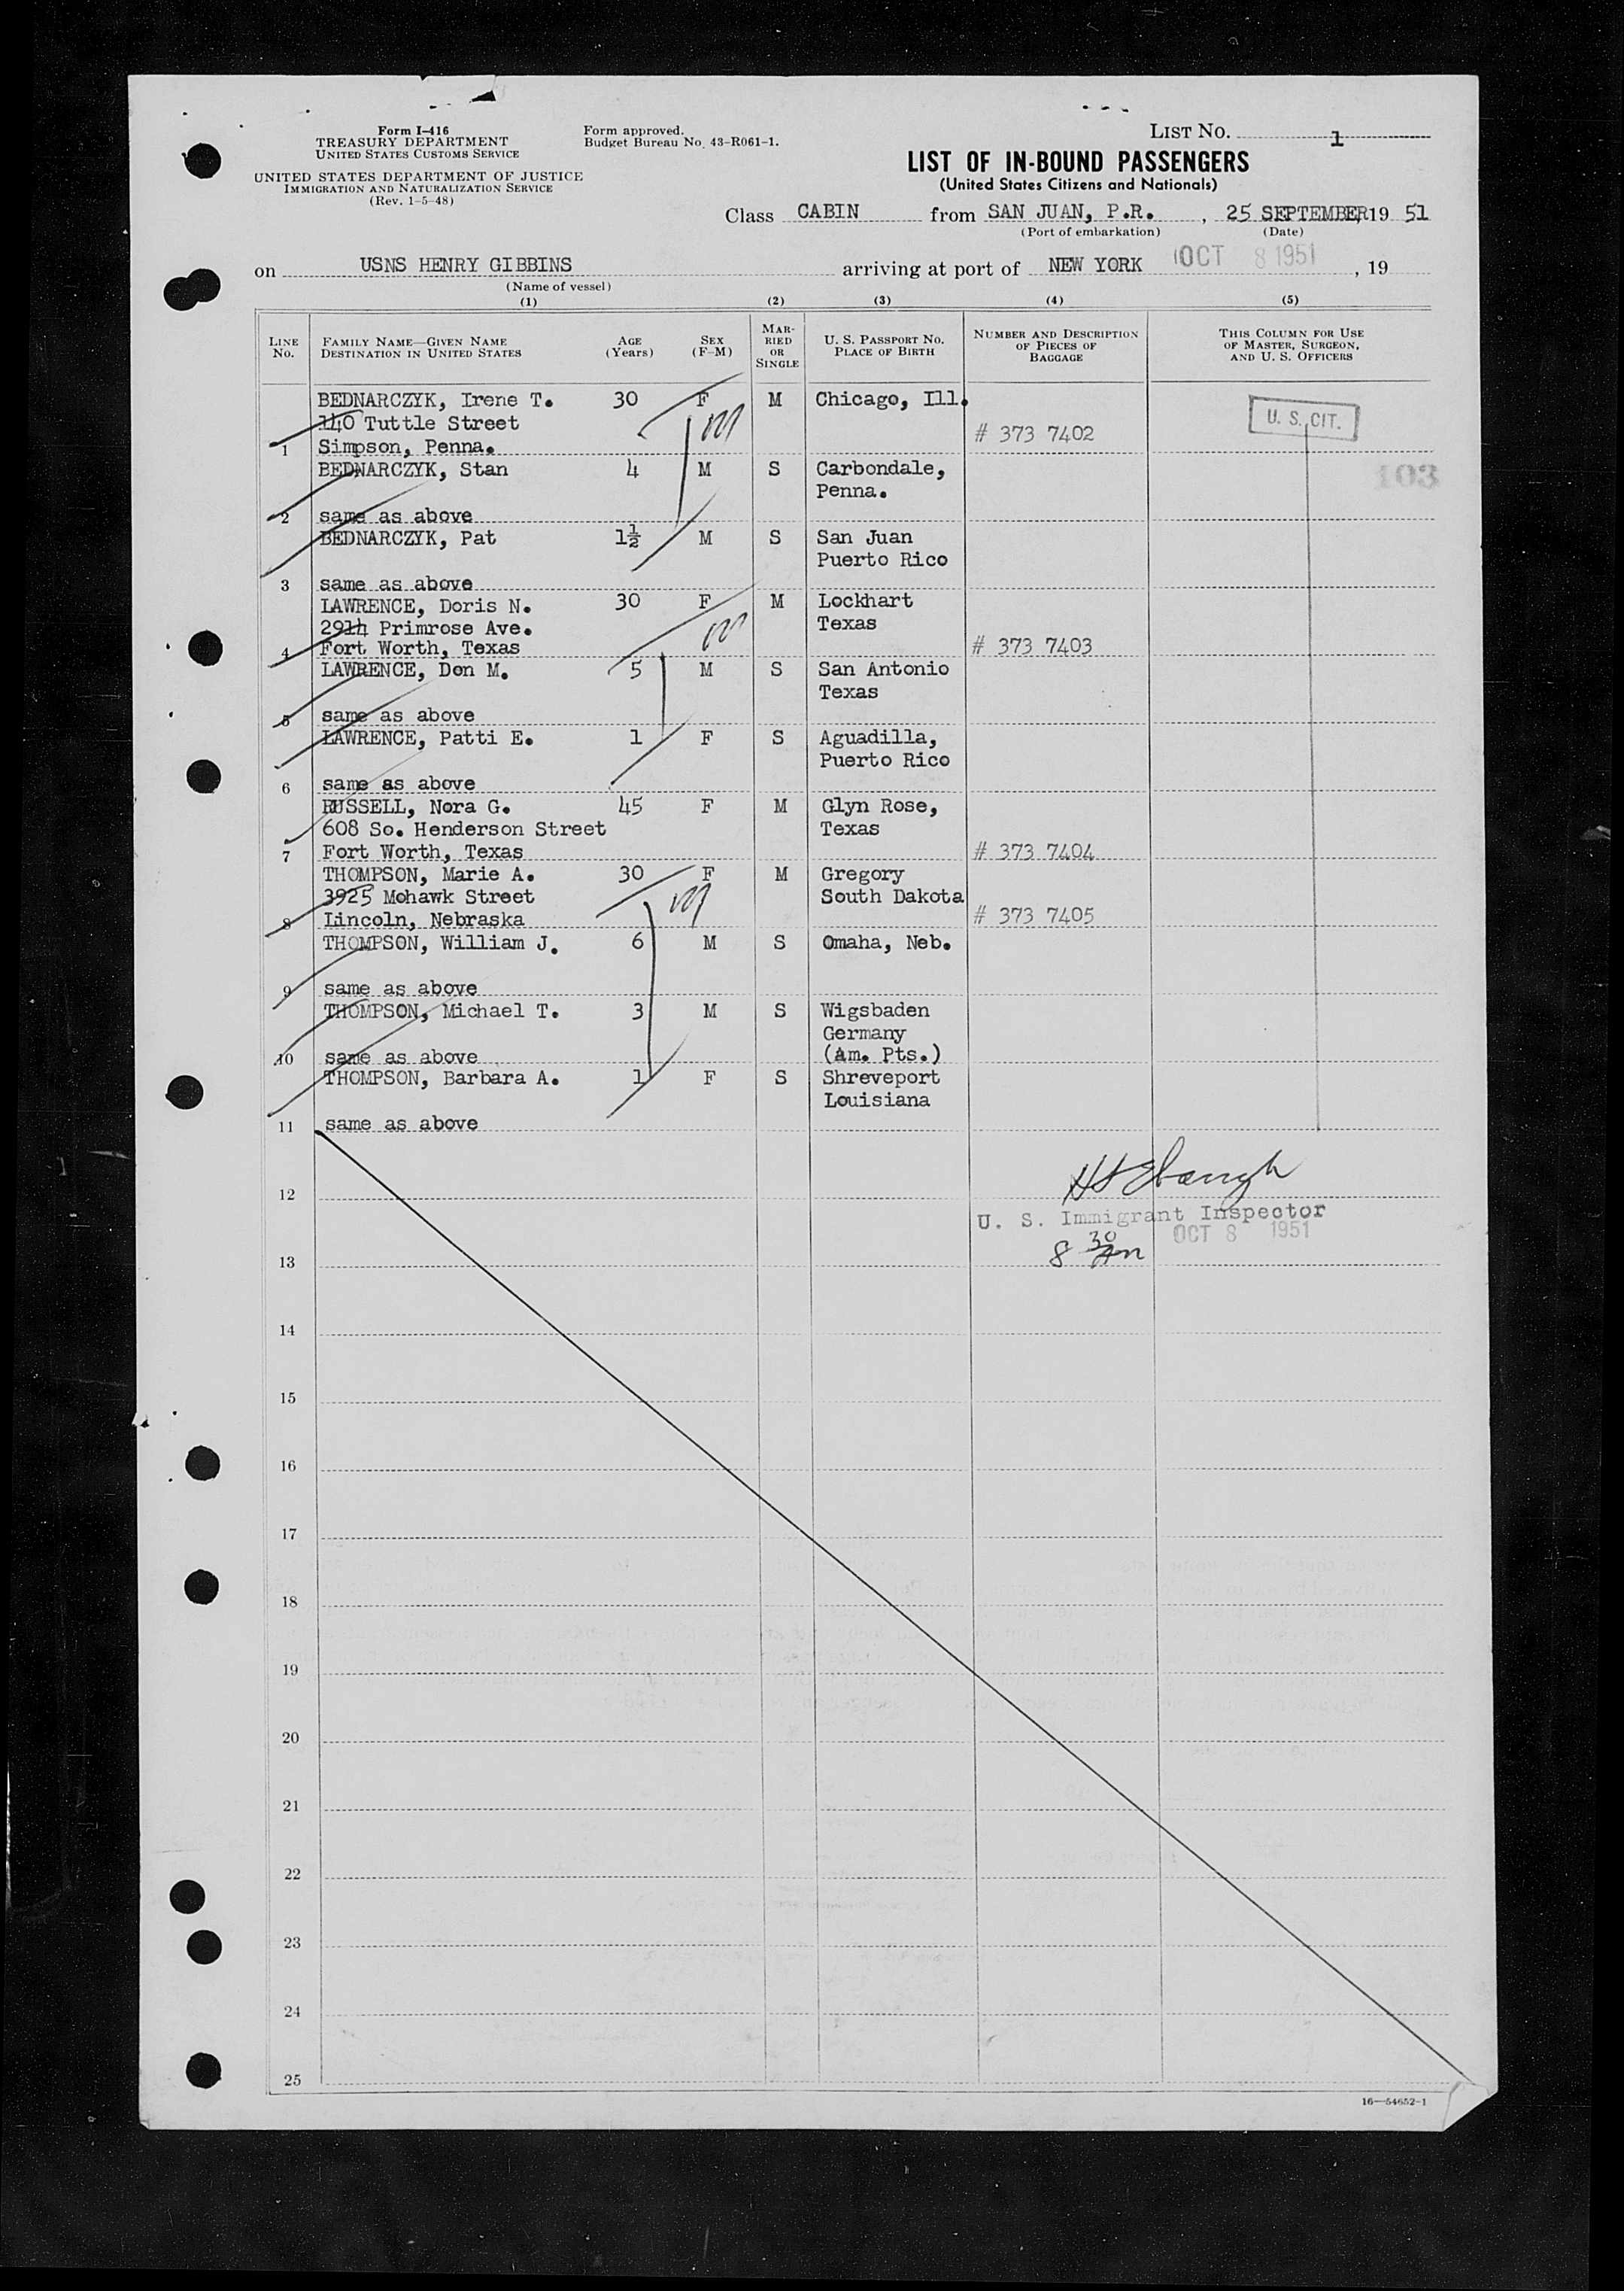 Form I-416
TREASURY DEPARTMENT
UNITED STATES CUSTOMS SERVICE
UNITED STATES DEPARTMENT OF JUSTICE
IMMIGRATION AND NATURALIZATION SERVICE
(Rev. 1-5-48)
Form approved.
Budget Bureau No. 43-R061-1.
LIST NO. 1
LIST OF IN-BOUND PASSENGERS
(United States Citizens and Nationals)
Class CABIN from SAN JUAN, P.R., 25 SEPTEMBER, 19 51
(Port of embarkation) (Date)
on USNS HENRY GIBBINS arriving at port of NEW YORK OCT 8 1951, 19
(Name of vessel)
(1) (2) (3) (4) (5)
LINE No. FAMILY NAME—GIVEN NAME DESTINATION IN UNITED STATES AGE (Years) SEX (F-M) MARRIED OR SINGLE U. S. PASSPORT NO. PLACE OF BIRTH NUMBER AND DESCRIPTION OF PIECES OF BAGGAGE THIS COLUMN FOR USE OF MASTER, SURGEON, AND U. S. OFFICERS
BEDNARCZYK, Irene T. 30 F M Chicago, Ill.
140 Tuttle Street U. S. CIT.
1 Simpson, Penna. # 373 7402
BEDNARCZYK, Stan 4 M S Carbondale, 103
Penna.
2 same as above
BEDNARCZYK, Pat 1½ M S San Juan
Puerto Rico
3 same as above
LAWRENCE, Doris N. 30 F M Lockhart
2914 Primrose Ave. Texas
4 Fort Worth, Texas # 373 7403
LAWRENCE, Don M. 5 M S San Antonio
Texas
5 same as above
LAWRENCE, Patti E. 1 F S Aguadilla,
Puerto Rico
6 same as above
RUSSELL, Nora G. 45 F M Glyn Rose,
608 So. Henderson Street Texas
7 Fort Worth, Texas # 373 7404
THOMPSON, Marie A. 30 F M Gregory
3925 Mohawk Street South Dakota
8 Lincoln, Nebraska # 373 7405
THOMPSON, William J. 6 M S Omaha, Neb.
9 same as above
THOMPSON, Michael T. 3 M S Wigsbaden
Germany
10 same as above (Am. Pts.)
THOMPSON, Barbara A. 1 F S Shreveport
Louisiana
11 same as above
12
U. S. Immigrant Inspector
OCT 8 1951
13 8 30 Am
14
15
16
17
18
19
20
21
22
23
24
25
16—54652-1